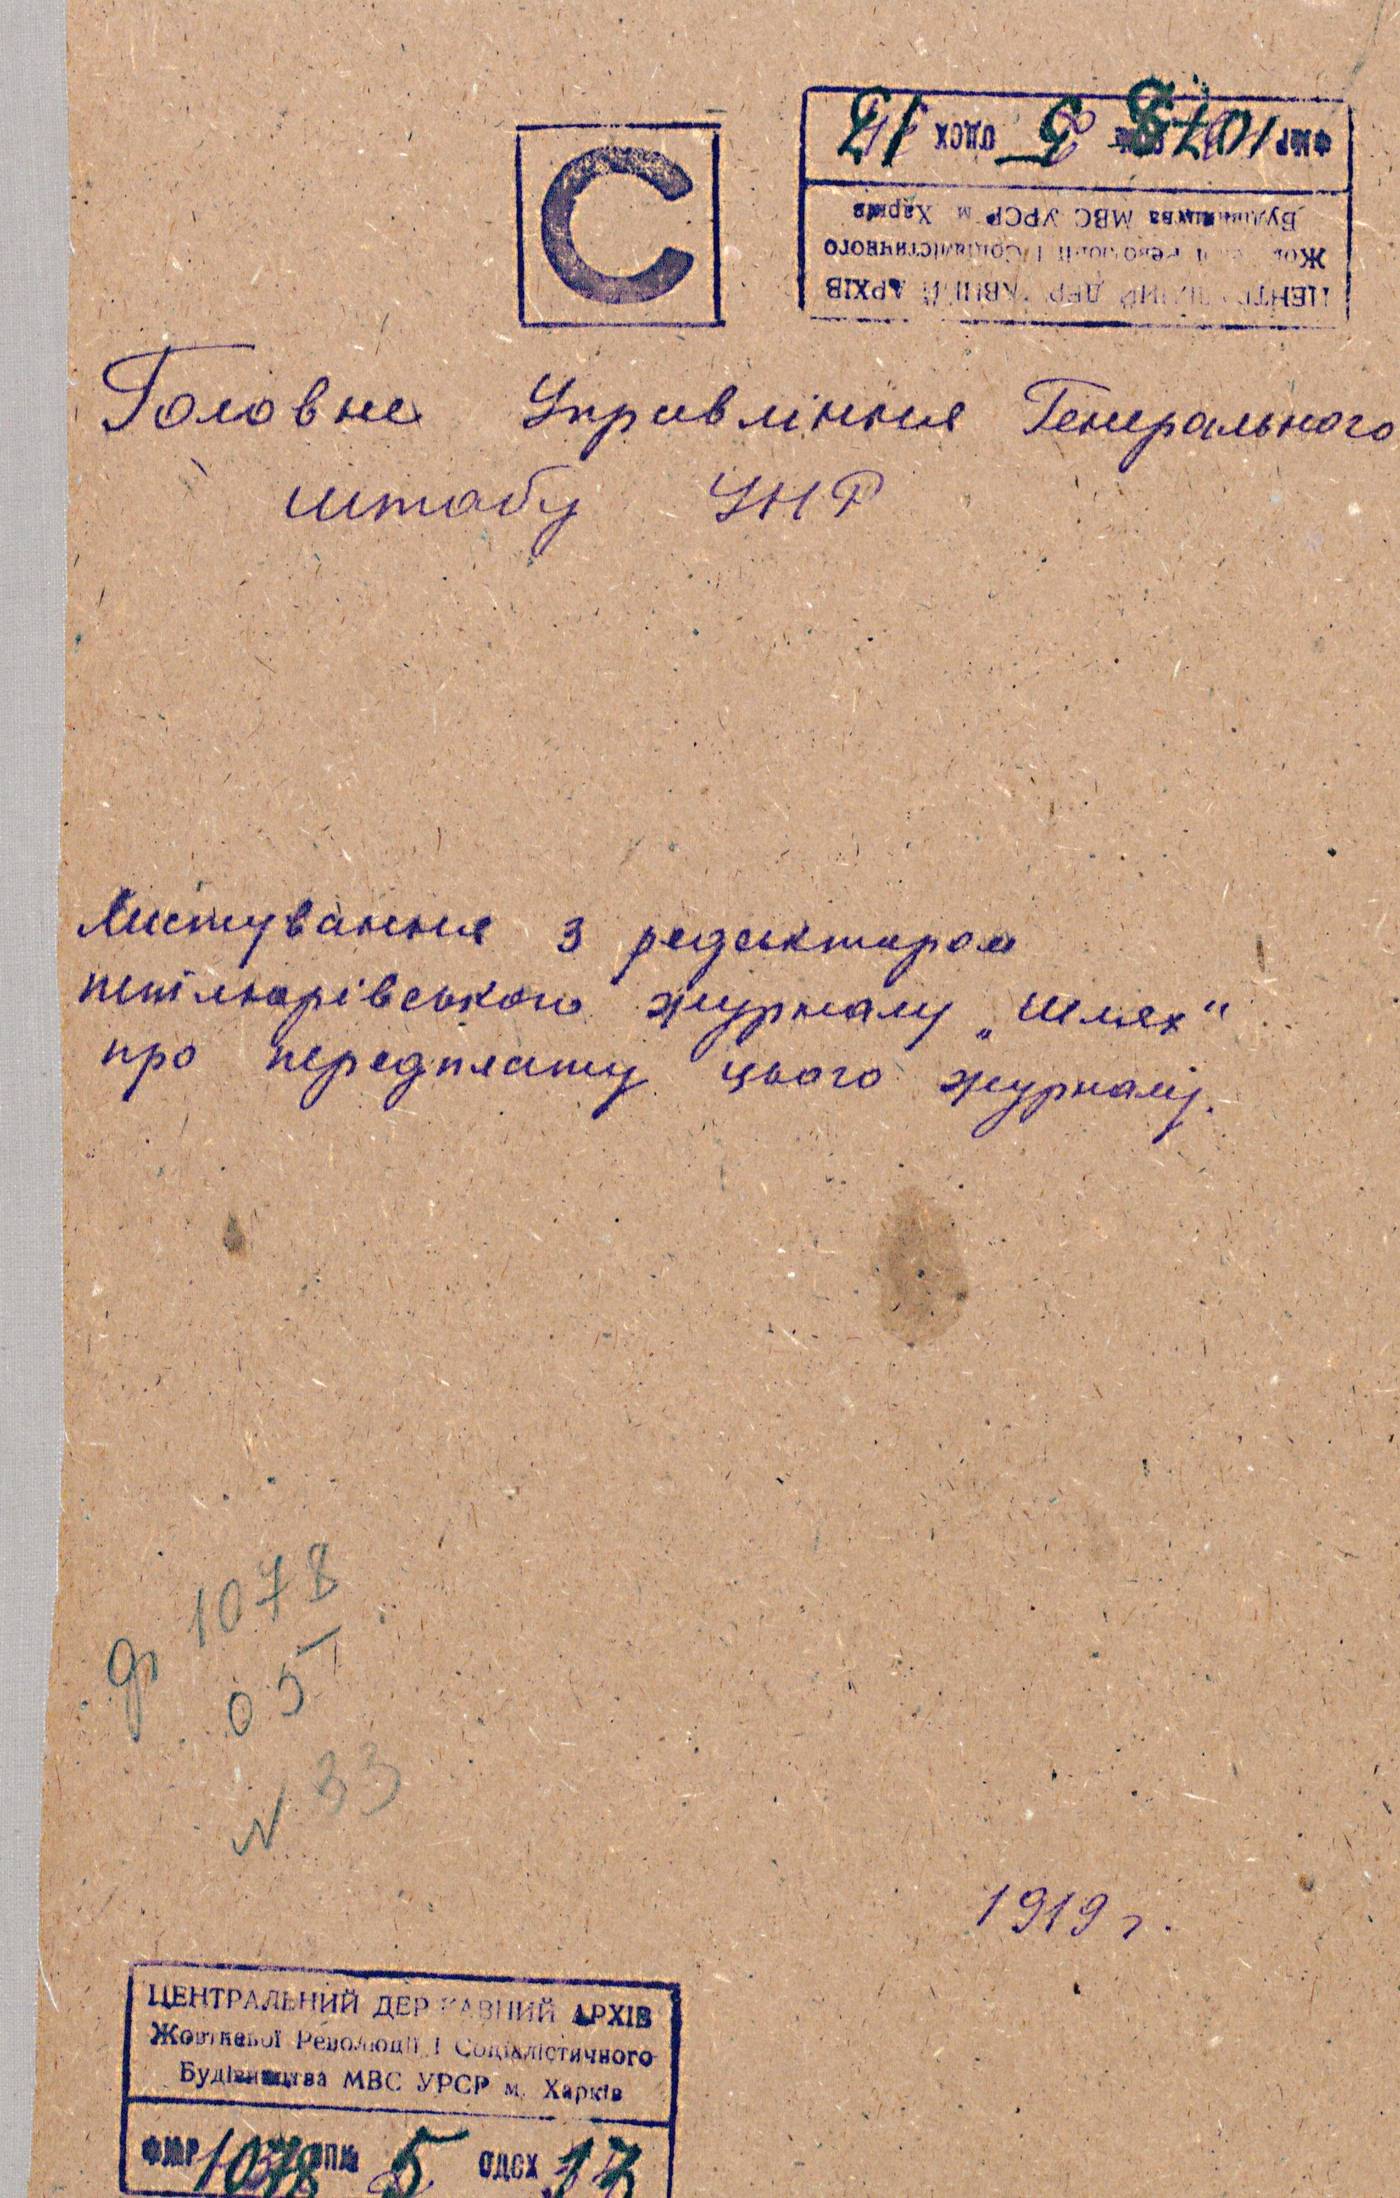 С
Головне Управління Генерального
штабу УНР
Листування з редактором
петлюрівського журналу „Шлях"
про передплату цього журналу.
ф 1078
о 5
N 33
1919 г.
ЦЕНТРАЛЬНИЙ ДЕРЖАВНИЙ АРХІВ
Жовтневої Революції і Соціалістичного
Будівництва МВС УРСР м. Харків
1078 5 ОДСХ
ЦЕНТРАЛЬНИЙ ДЕРЖАВНИЙ АРХІВ
Жовтневої Революції і Соціалістичного
Будівництва МВС УРСР м. Харків
1078 5 ОДСХ